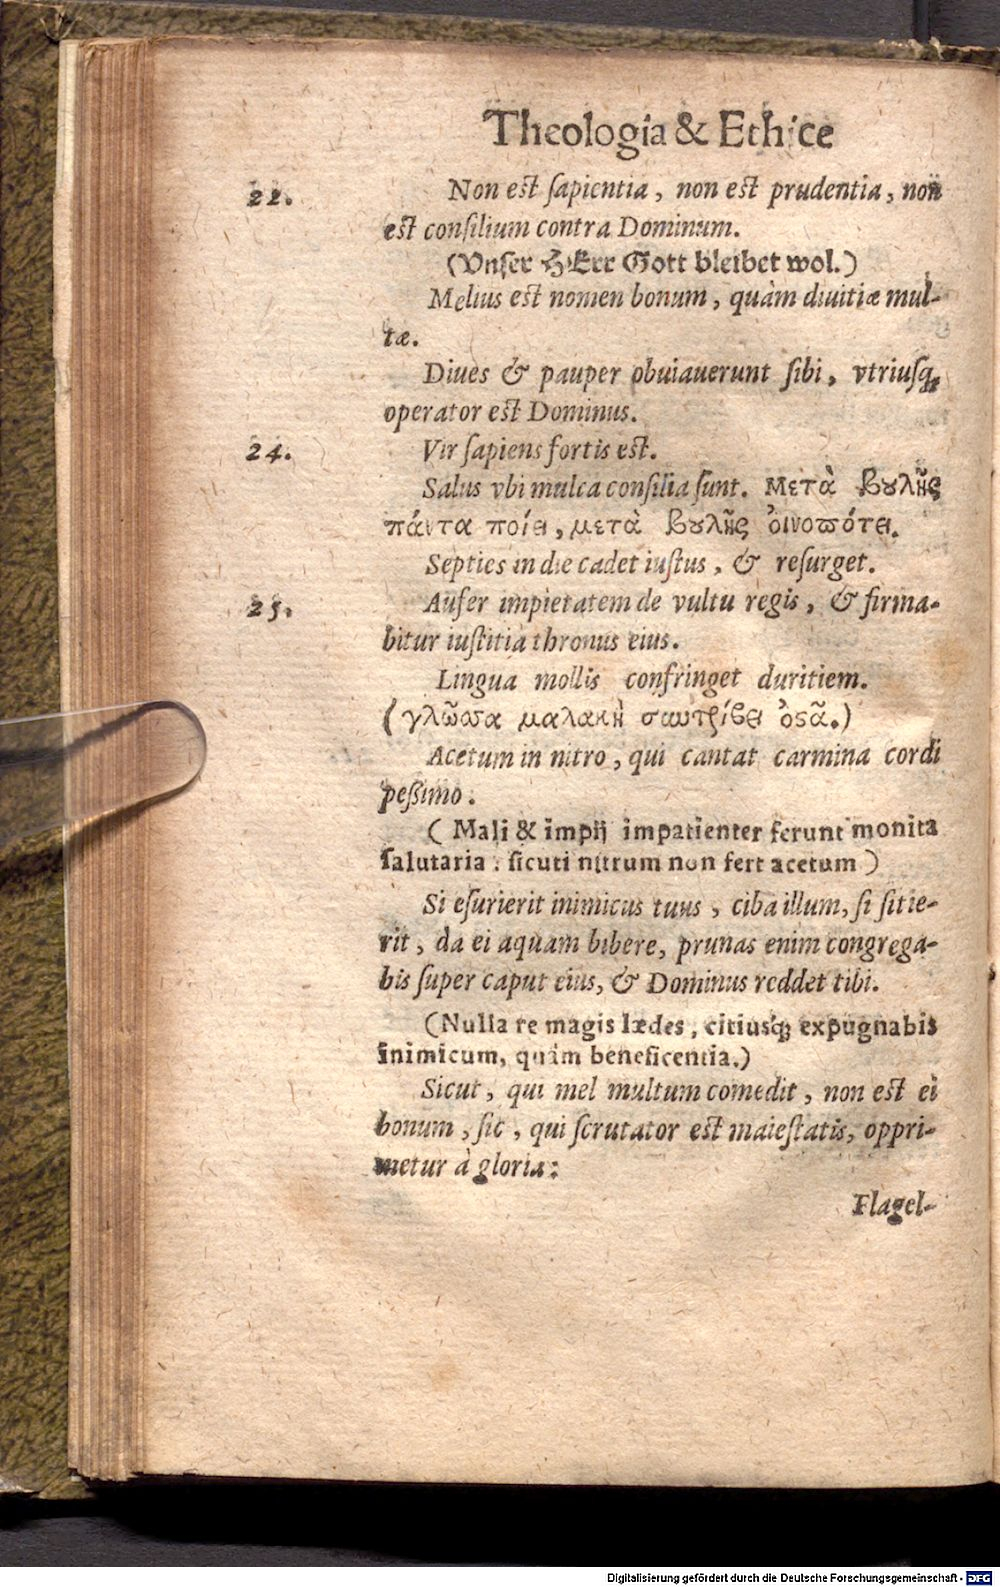 Theologia & Ethice
22. Non est sapientia, non est prudentia, non
est consilium contra Dominum.
(Vnser HErr Gott bleibet wol.)
Melius est nomen bonum, quàm diuitiæ mul-
tæ.
Diues & pauper obuiauerunt sibi, vtriusq;
operator est Dominus.
24. Vir sapiens fortis est.
Salus vbi multa consilia sunt. Μετὰ βȣλῆς
πάντα ποίει, μετὰ βȣλῆς ὀινοπότει.
Septies in die cadet iustus, & resurget.
25. Aufer impietatem de vultu regis, & firma-
bitur iustitia thronus eius.
Lingua mollis confringet duritiem.
(γλῶσσα μαλακὴ συντρίβει ὀστᾶ.)
Acetum in nitro, qui cantat carmina cordi
pessimo.
(Mali & impij impatienter ferunt monita
salutaria: sicuti nitrum non fert acetum)
Si esurierit inimicus tuus, ciba illum, si sitie-
rit, da ei aquam bibere, prunas enim congrega-
bis super caput eius, & Dominus reddet tibi.
(Nulla re magis lædes, citiusq; expugnabis
inimicum, quàm beneficentia.)
Sicut, qui mel multum comedit, non est ei
bonum, sic, qui scrutator est maiestatis, oppri-
metur à gloria:
Flagel-
Digitalisierung gefördert durch die Deutsche Forschungsgemeinschaft - DFG